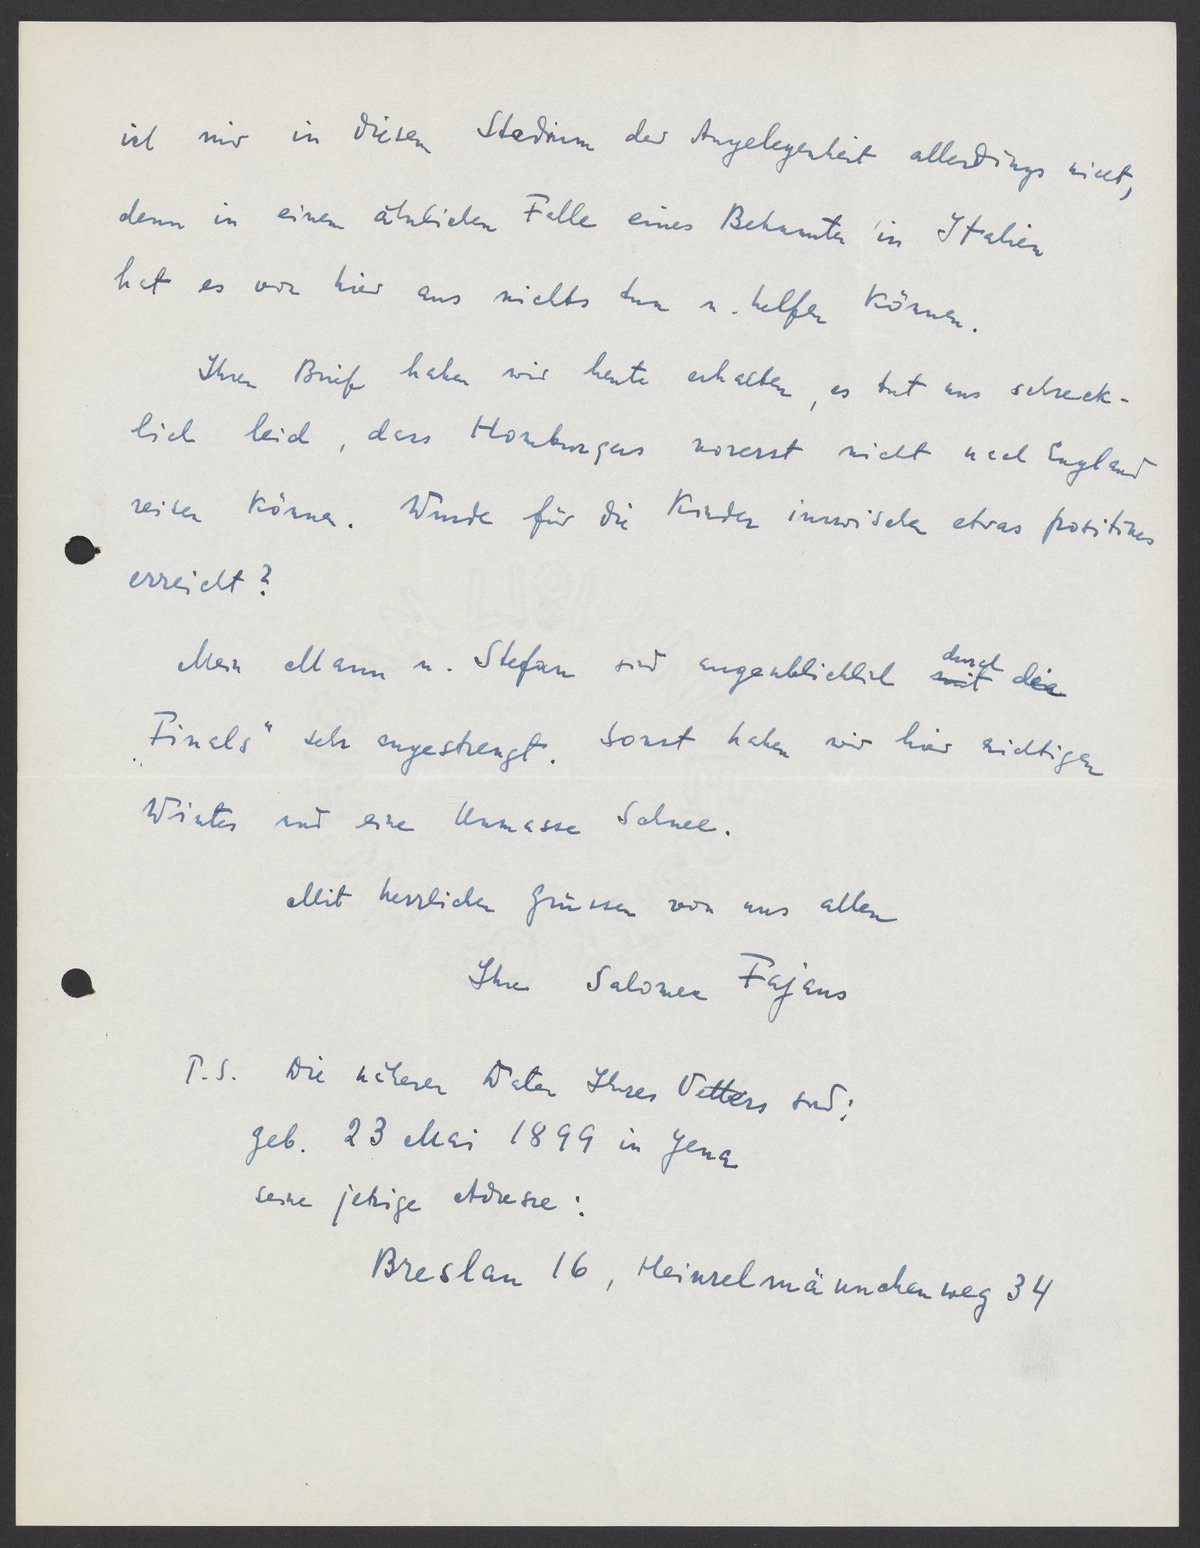 ist mir in diesem Stadium der Angelegenheit allerdings nicht,
denn in einem ähnlichen Falle eines Bekannten in Italien
hat es von hier aus nichts tun u. helfen können.
Ihren Brief haben wir heute erhalten, es tut uns schreck-
lich leid, dass Homburgers vorerst nicht nach England
reisen können. Wurde für die Kinder inzwischen etwas positives
erreicht?
Mein Mann u. Stefan sind augenblicklich mit durch die
"Finals" sehr angestrengt. Sonst haben wir hier richtigen
Winter und eine Unmasse Schnee.
Mit herzlichen Grüssen von uns allen
Ihre Salomea Fajans
P.S. Die näheren Daten Ihres Vetters sind:
geb. 23 Mai 1899 in Jena
seine jetzige Adresse:
Breslau 16, Heinzelmännchenweg 34